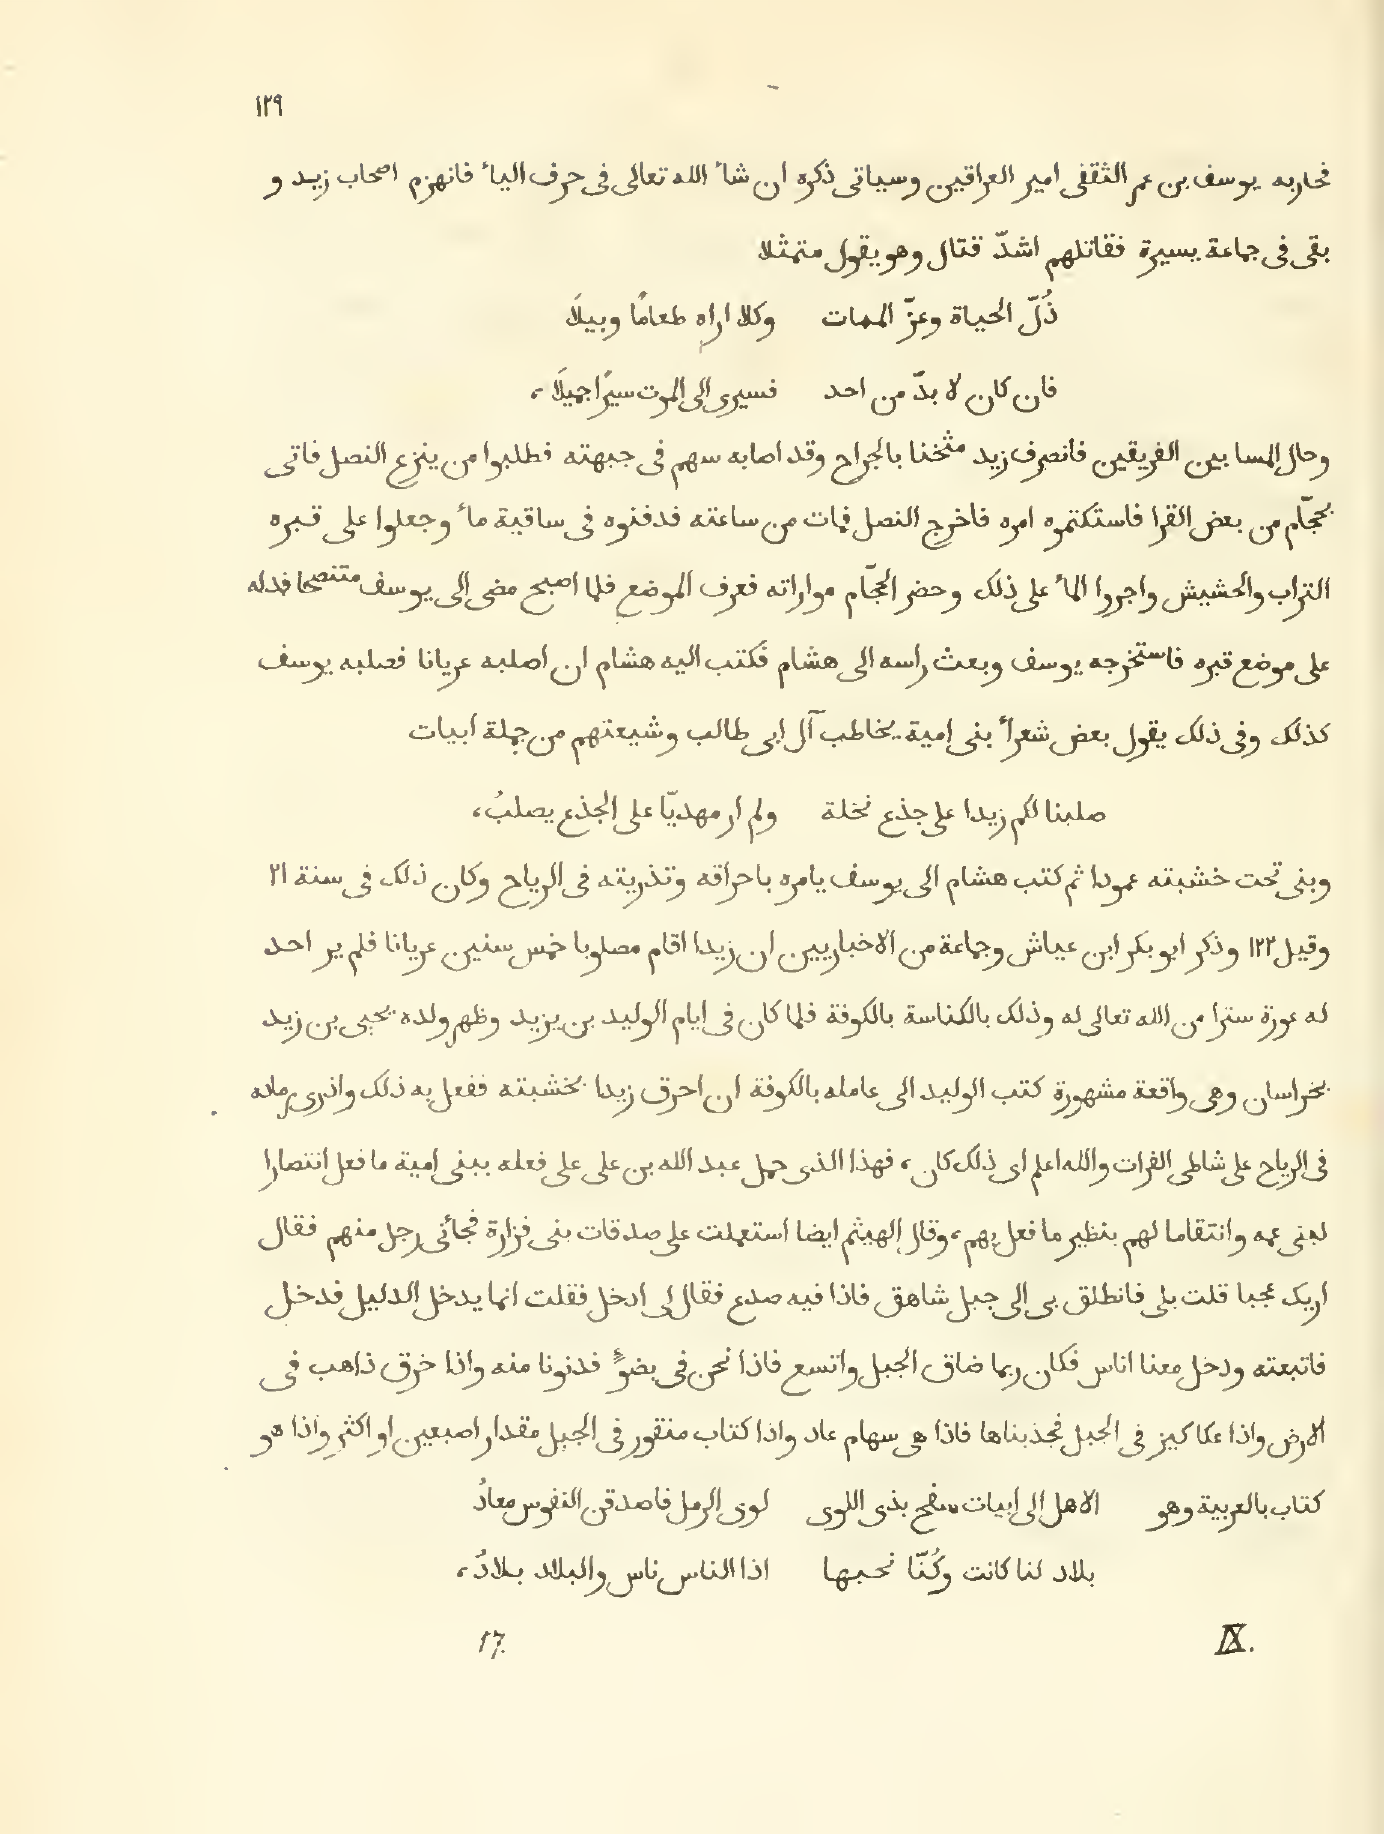 ١٢٩
فحاربه يوسف بن عمر الثقفى امير العراقين وسياتى ذكره ان شاء الله تعالى فى حرف الياء فانهزم اصحاب زيد و
بقى فى جماعة يسيرة فقاتلهم اشدّ قتال وهو يقول متمثلا
ذُلّ الحياة وعزّ الممات وكلا اراه طعامًا وبيلَا
فان كان لا بدّ من احد فسيرى الى الموت سيرًا جميلَا،
وحال المسا بين الفريقين فانصرف زيد مثخنا بالجراح وقد اصابه سهم فى جبهته فطلبوا من ينزع النصل فاتى
بحجّام من بعض القرا فاستكتموه امره فاخرج النصل فمات من ساعته فدفنوه فى ساقية ماء وجعلوا على قبره
التراب والحشيش واجروا الماء على ذلك وحضر الحجّام مواراته فعرف الموضع فلما اصبح مضى الى يوسف متنصحا فدله
على موضع قبره فاستخرجه يوسف وبعث راسه الى هشام فكتب اليه هشام ان اصلبه عريانا فصلبه يوسف
كذلك وفى ذلك يقول بعض شعراء بنى امية يخاطب آل ابى طالب وشيعتهم من جملة ابيات
صلبنا لكم زيدا على جذع نخلة ولم ار مهديّا على الجذع يصلبُ،
وبنى تحت خشبته عمودا ثم كتب هشام الى يوسف يامره باحراقه وتذريته فى الرياح وكان ذلك فى سنة ٢١
وقيل ١٢٢ وذكر ابو بكر ابن عياش وجماعة من الاخباريين ان زيدا اقام مصلوبا خمس سنين عريانا فلم ير احد
له عورة سترا من الله تعالى له وذلك بالكناسة بالكوفة فلما كان فى ايام الوليد بن يزيد وظهر ولده يحيى بن زيد
بخراسان وهى واقعة مشهورة كتب الوليد الى عامله بالكوفة ان احرق زيدا بخشبته ففعل به ذلك واذرى رماده
فى الرياح على شاطى الفرات والله اعلم اى ذلك كان، فهذا الذى حمل عبد الله بن على على فعله ببنى امية ما فعل انتصارا
لبنى عمه وانتقاما لهم بنظير ما فعل بهم، وقال الهيثم ايضا استعملت على صدقات بنى فزارة فجائنى رجل منهم فقال
اريك عجبا قلت بلى فانطلق بى الى جبل شاهق فاذا فيه صدع فقال لى ادخل فقلت انما يدخل الدليل فدخل
فاتبعته ودخل معنا اناس فكان ربما ضاق الجبل واتسع فاذا نحن فى بضوءٍ فدنونا منه واذا خرق ذاهب فى
الارض واذا عكاكيز فى الجبل فجذبناها فاذا هى سهام عاد واذا كتاب منقور فى الجبل مقدار اصبعين او اكثر واذا هو
كتاب بالعربية وهو الا هل الى ابيات سفح بذى اللوى لوى الرمل فاصدقن النفوس معادُ
بلاد لنا كانت وكُنّا نحبها اذا الناس ناس والبلاد بلادُ،
IX. 17.